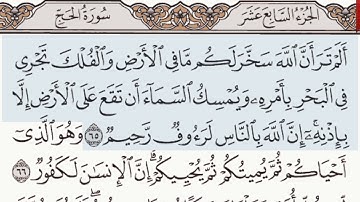 الجزء السابع عشر سورة الحج
أَلَمْ تَرَ أَنَّ ٱللَّهَ سَخَّرَ لَكُم مَّا فِى ٱلْأَرْضِ وَٱلْفُلْكَ تَجْرِى
فِى ٱلْبَحْرِ بِأَمْرِهِۦ وَيُمْسِكُ ٱلسَّمَآءَ أَن تَقَعَ عَلَى ٱلْأَرْضِ إِلَّا
بِإِذْنِهِۦٓ ۗ إِنَّ ٱللَّهَ بِٱلنَّاسِ لَرَءُوفٌ رَّحِيمٌ ٦٥ وَهُوَ ٱلَّذِىٓ
أَحْيَاكُمْ ثُمَّ يُمِيتُكُمْ ثُمَّ يُحْيِيكُمْ ۗ إِنَّ ٱلْإِنسَٰنَ لَكَفُورٌ ٦٦